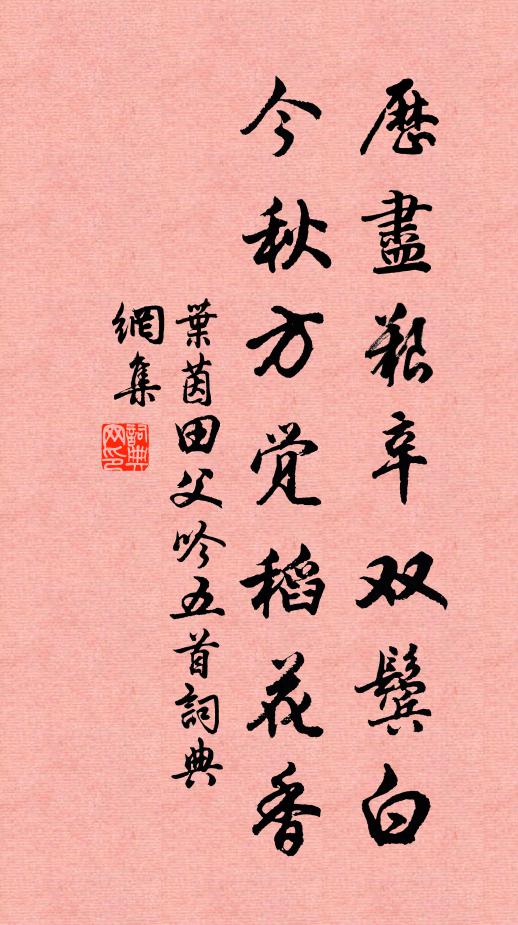 歷盡艱辛双鬓白
今秋方觉稻花香
葉茵田父吟五首詞典
網集
詞典
网印